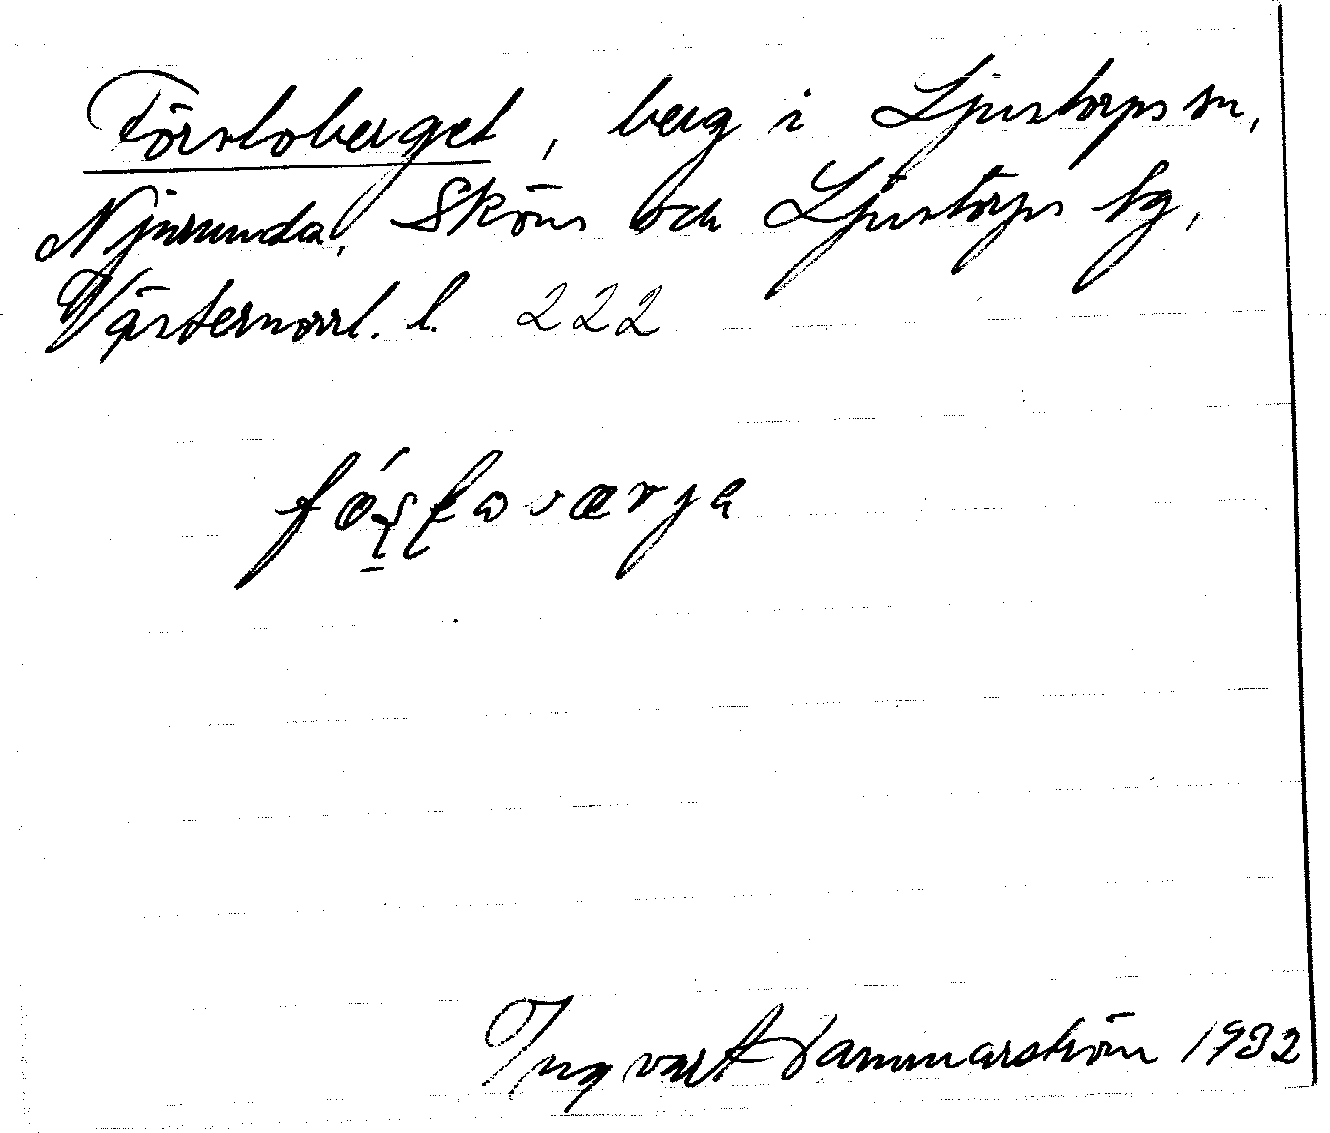 Förstoberget, berg i Ljustorps sn,
Njurunda, Sköns och Ljustorps tg,
Västernorrl. l. 222
Ingvart Hammarström 1932